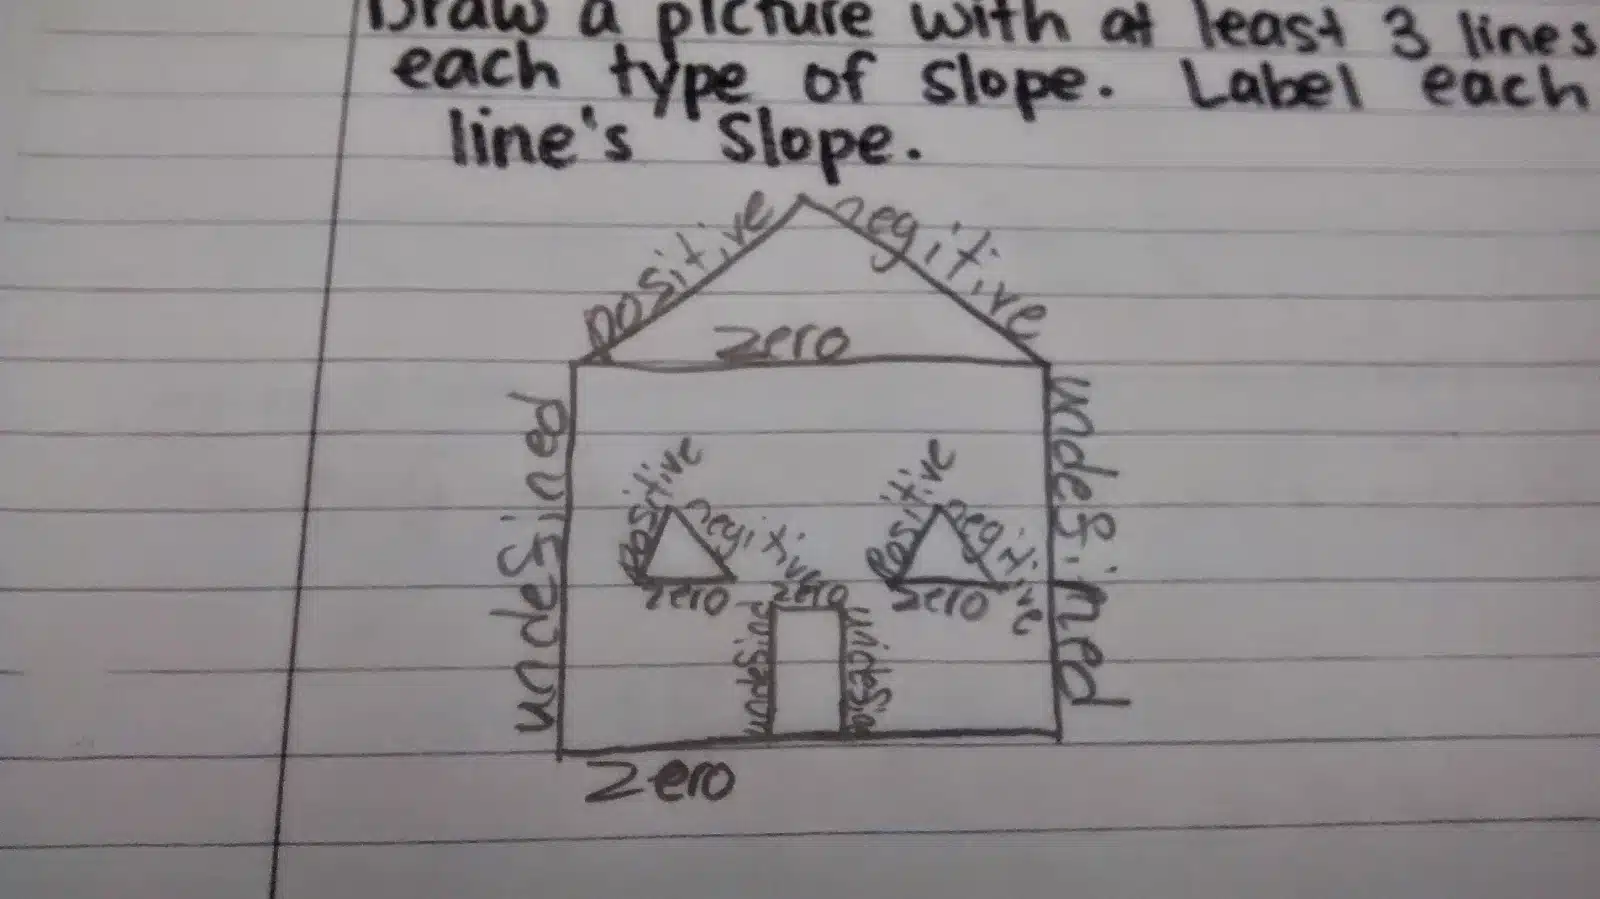 Draw a picture with at least 3 lines
each type of slope. Label each
line's slope.
positive
negitive
zero
undefined
undefined
positive
negitive
positive
negitive
zero
zero
zero
zero